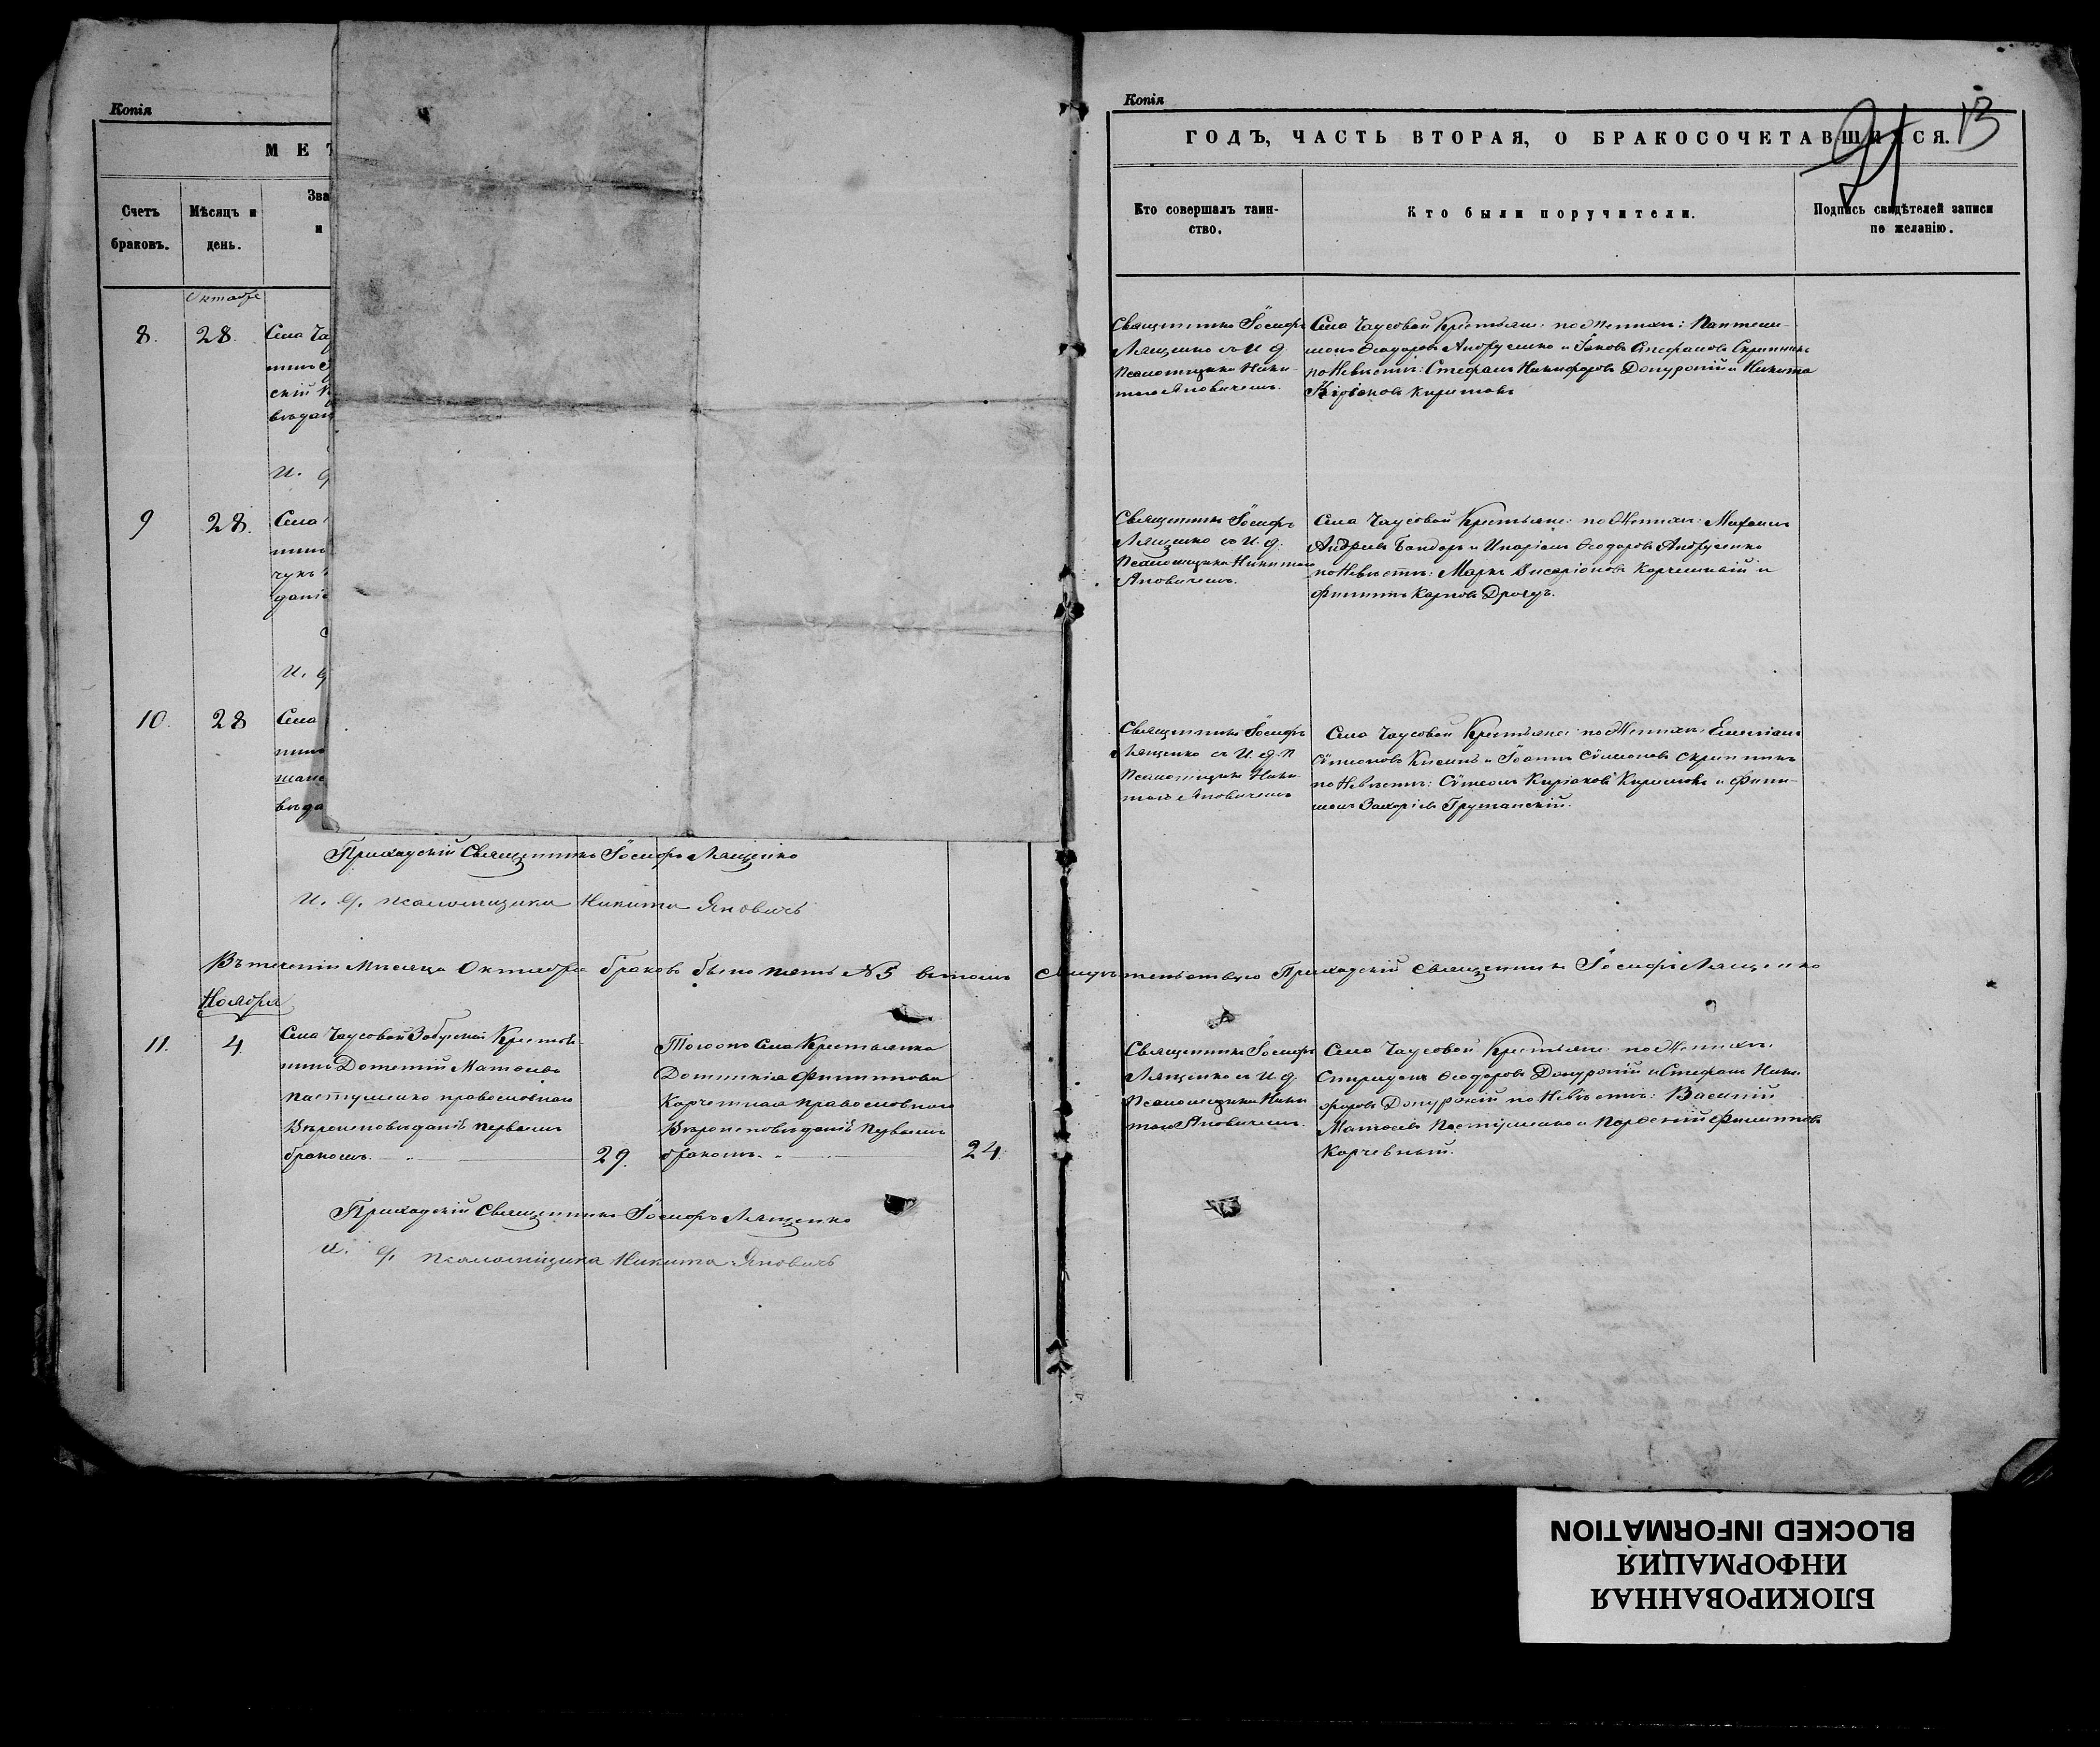 Копія
М Е Т
Счетъ браковъ.
Мѣсяцъ и день.
Зва
и
Октабрь
8.
28.
Села Ча
нинъ
скій
вѣдан
И. д
9
28.
Села
нинъ
чукъ
даніе
И. д
10.
28
Села
нинъ
вѣда
Приходскій Священникъ Іосифъ Лященко
И. д. псаломщика Никита Яновичъ
Въ теченіи Мѣсяца Октабра браковъ было пять №5 въ томъ свидѣтельствую Приходскій священникъ Іосифъ Лященко
Ноября
11.
4.
Села Чаусовой Забугской Крестья-
нинъ Дометій Матѳеевъ
Пастушенко православнаго
Вѣроисповѣданія первымъ
бракомъ.
29.
Тогоже Села Крестьянка
Домникія Филиппова
Корчевная православнаго
Вѣроисповѣданія первымъ
бракомъ.
24.
Приходскій Священникъ Іосифъ Лященко
И. д. псаломщика Никита Яновичъ
Копія
ГОДЪ, ЧАСТЬ ВТОРАЯ, О БРАКОСОЧЕТАВШИХСЯ.
21
13
Кто совершалъ таин-
ство.
Кто были поручители.
Подпись свидѣтелей записи
по желанію.
Священникъ Іосифъ
Лященко съ И д
Псаломщика Ники-
тою Яновичемъ.
Села Чаусовой Крестьяне: по Женихѣ: Пантели-
монъ Ѳеодоровъ Андрусенко и Іаковъ Стефановъ Скрипникъ
по Невѣстѣ: Стефанъ Никифоровъ Донурскій и Никита
Киріаковъ
Священникъ Іосифъ
Лященко съ И. д.
Псаломщика Никитою
Яновичемъ.
Села Чаусовой Крестьяне: по Женихѣ: Михаилъ
Андреевъ Бондарь и Иларіонъ Ѳеодоровъ Андрусенко
по Невѣстѣ: Маркъ Висаріоновъ Корчевный и
Филиппъ Карповъ
Священникъ Іосифъ
Лященко съ И. д. П
Псаломщика Ники-
тою Яновичемъ
Села Чаусовой Крестьяне: по Женихѣ: Емеліанъ
Сѵмеоновъ и Іоаннъ Сѵмеоновъ Скрипникъ
по Невѣстѣ: Сѵмеонъ Киріаковъ и Фили-
монъ Захаріевъ Грушанскій.
Священникъ Іосифъ
Лященко съ И д
Псаломщика Ники
тою Яновичемъ.
Села Чаусовой Крестьяне: по Женихѣ:
Спиридонъ Ѳеодоровъ Донурскій и Стефанъ Ники-
форовъ Донурскій по Невѣстѣ: Василій
Матѳеевъ Пастушенко и Филипповъ
Корчевный.
БЛОКИРОВАННАЯ
ИНФОРМАЦИЯ
BLOCKED INFORMATION